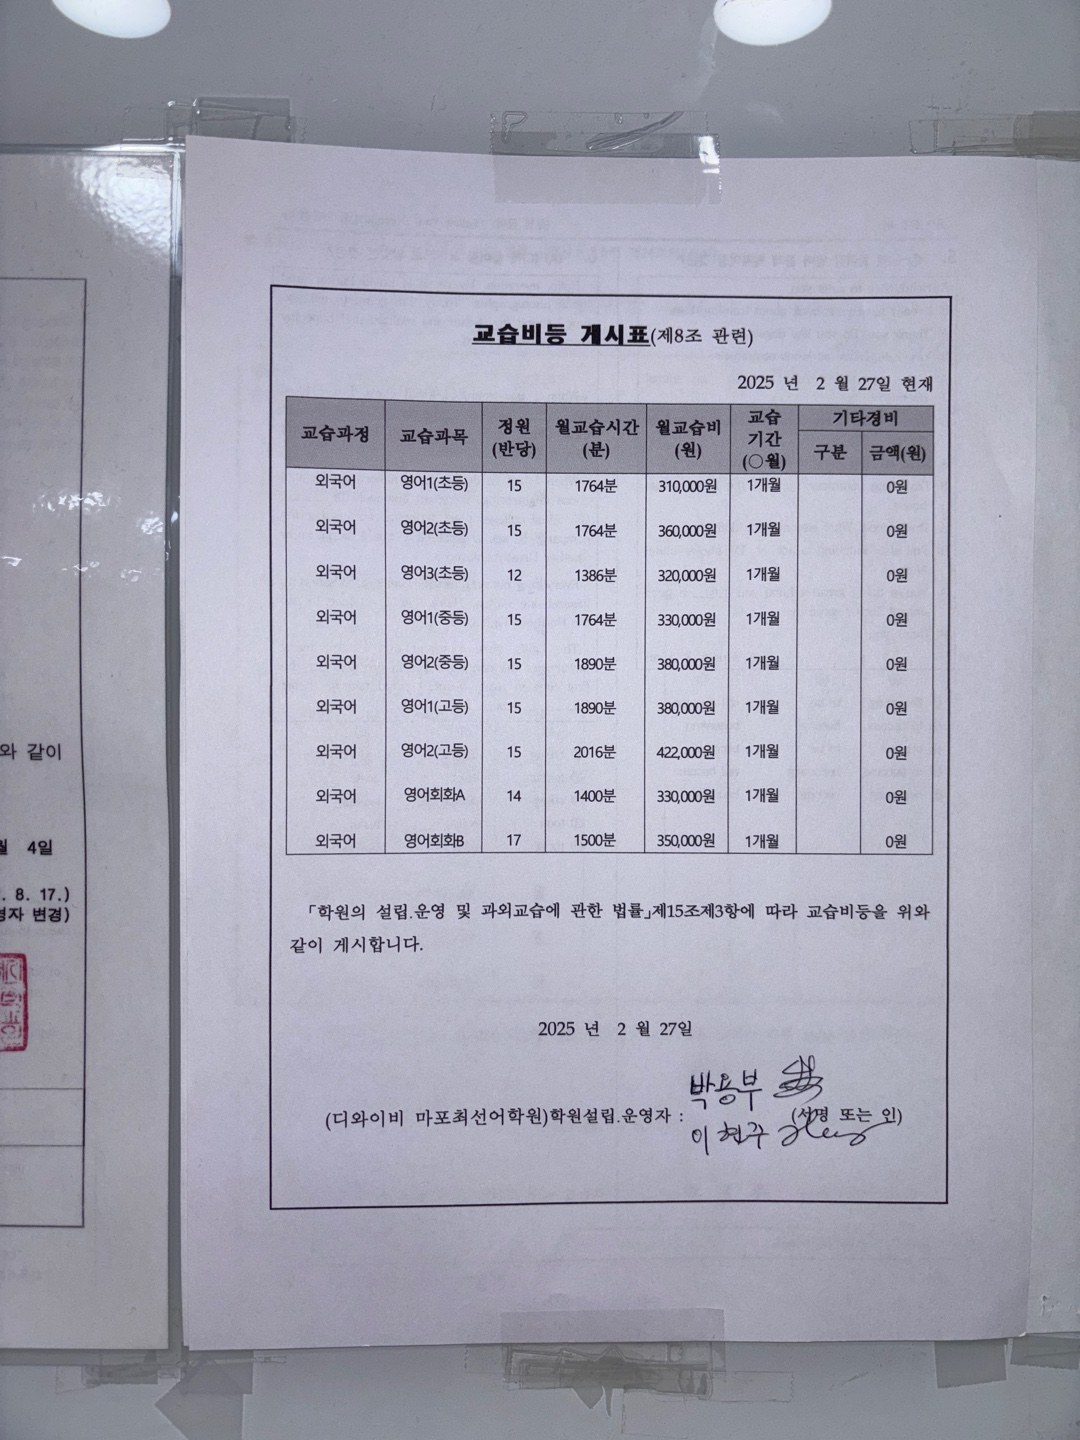 교습비등 게시표(제8조 관련)
2025 년 2 월 27일 현재
교습과정 교습과목 정원(반당) 월교습시간(분) 월교습비(원) 교습기간(○월) 기타경비 구분 금액(원)
외국어 영어1(초등) 15 1764분 310,000원 1개월 0원
외국어 영어2(초등) 15 1764분 360,000원 1개월 0원
외국어 영어3(초등) 12 1386분 320,000원 1개월 0원
외국어 영어1(중등) 15 1764분 330,000원 1개월 0원
외국어 영어2(중등) 15 1890분 380,000원 1개월 0원
외국어 영어1(고등) 15 1890분 380,000원 1개월 0원
외국어 영어2(고등) 15 2016분 422,000원 1개월 0원
외국어 영어회화A 14 1400분 330,000원 1개월 0원
외국어 영어회화B 17 1500분 350,000원 1개월 0원
「학원의 설립.운영 및 과외교습에 관한 법률」제15조제3항에 따라 교습비등을 위와
같이 게시합니다.
2025 년 2 월 27일
박용부
(디와이비 마포최선어학원)학원설립.운영자 : (서명 또는 인)
이현주
와 같이
월 4일
. 8. 17.)
변경)